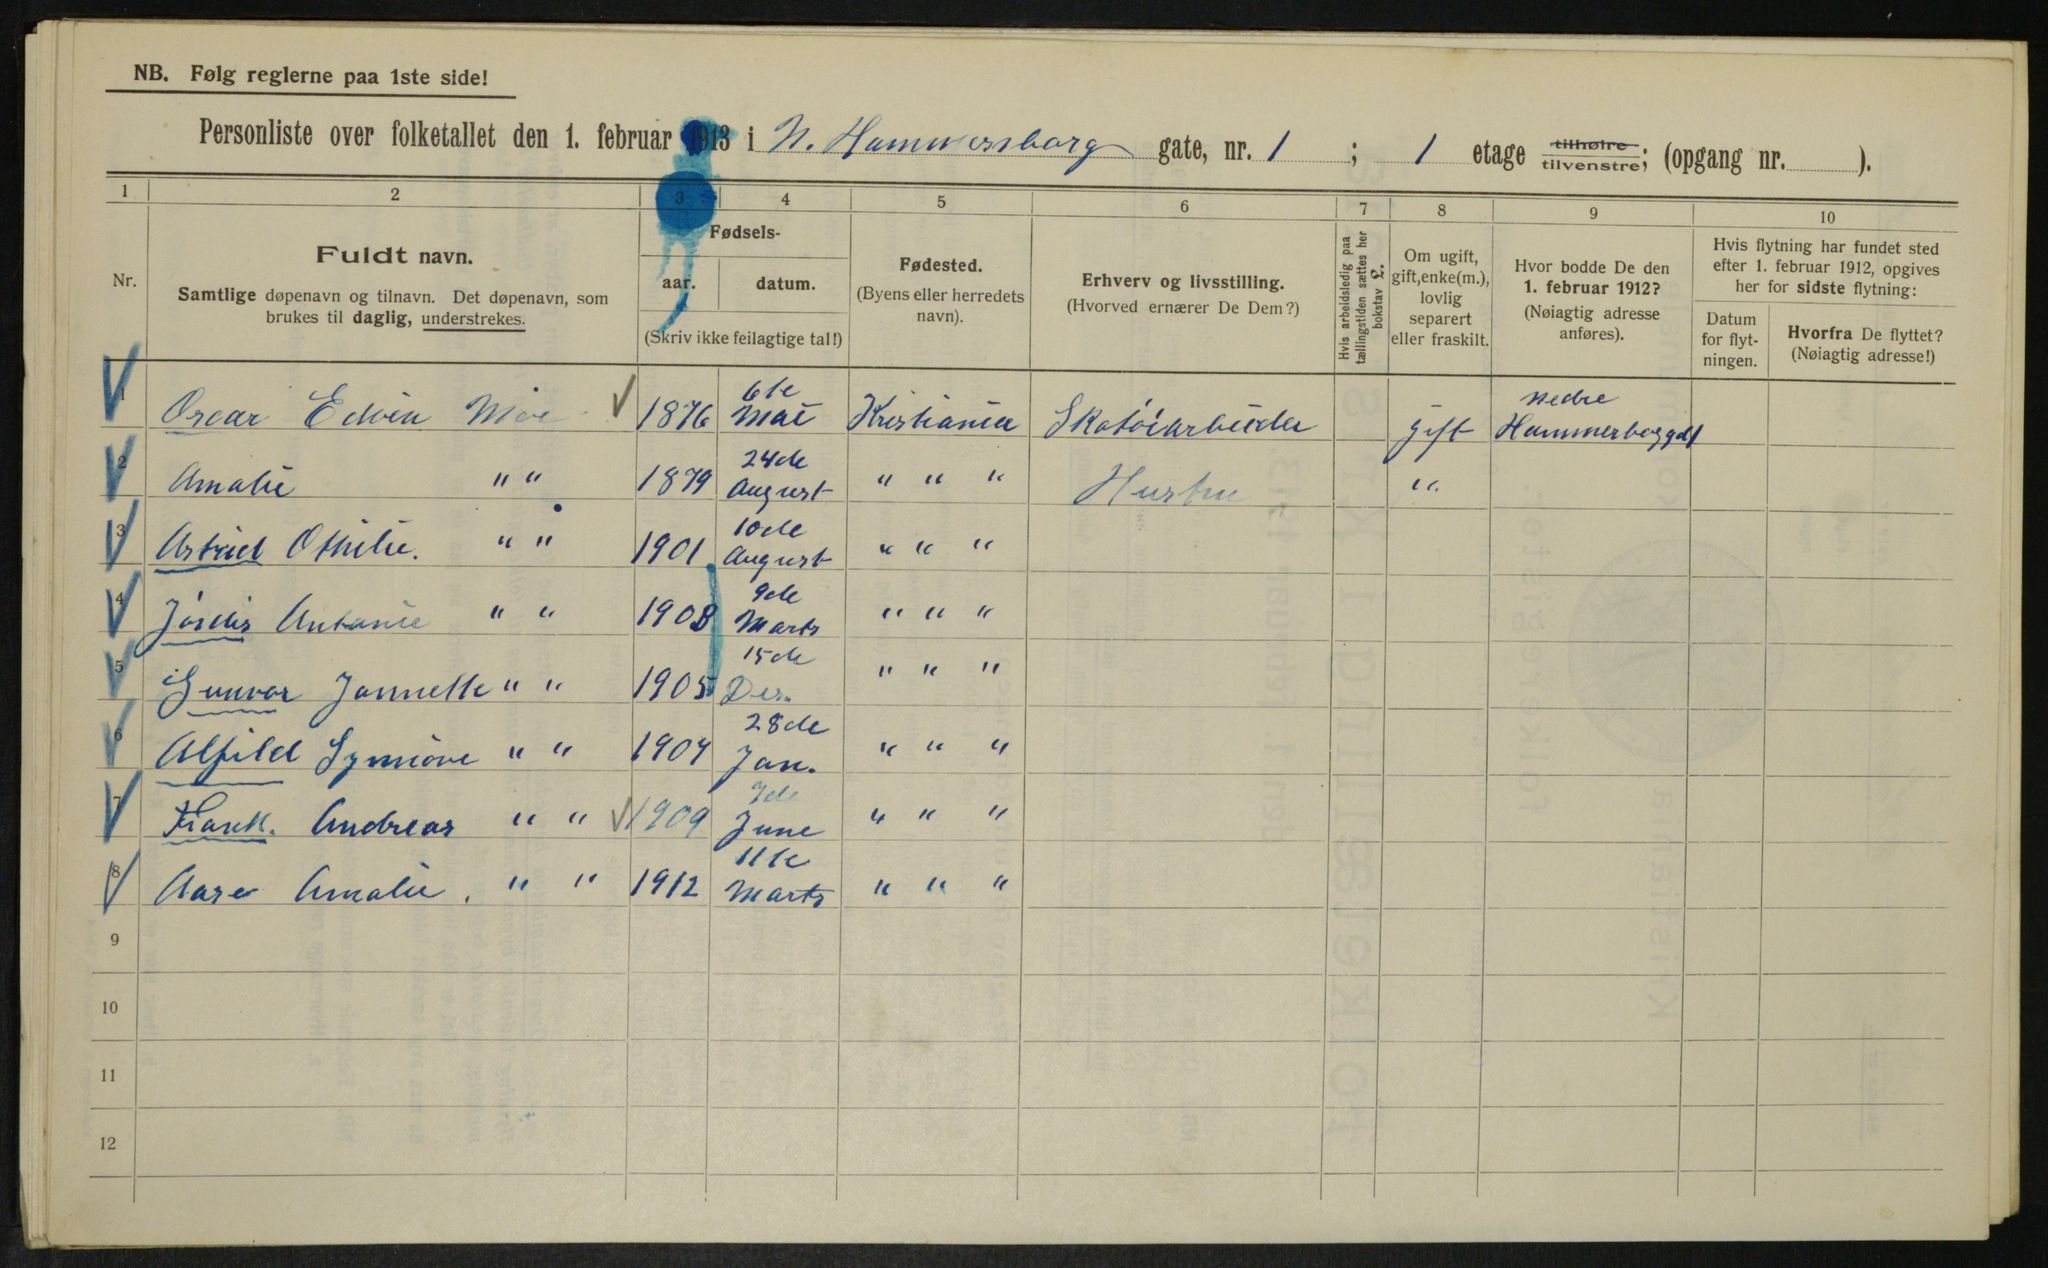 NB. Følg reglerne paa 1ste side!
Personliste over folketallet den 1. februar 1913 i N. Hammersborg gate, nr. 1 ; 1 etage tilhøire tilvenstre; (opgang nr. ).
1 2 3 4 5 6 7 8 9 10
Nr.
Fuldt navn.
Samtlige døpenavn og tilnavn. Det døpenavn, som
brukes til daglig, understrekes.
Fødsels-
aar. datum.
(Skriv ikke feilagtige tal!)
Fødested.
(Byens eller herredets
navn).
Erhverv og livsstilling.
(Hvorved ernærer De Dem?)
Hvis arbeidsledig paa
tællingstiden sættes her
bokstav L.
Om ugift,
gift, enke(m.),
lovlig
separert
eller fraskilt.
Hvor bodde De den
1. februar 1912?
(Nøiagtig adresse
anføres).
Hvis flytning har fundet sted
efter 1. februar 1912, opgives
her for sidste flytning:
Datum
for flyt-
ningen.
Hvorfra De flyttet?
(Nøiagtig adresse!)
1 Oscar Edvin Moe 1876 6te Mai Kristiania Skotøiarbeider gift nedre Hammerborggd 1
2 Amalie " " 1879 24de August " " " Hustru "
3 Astrid Othilie. " " 1901 10de August " " "
4 Jórdis Antonie " " 1903 9de Marts " " "
5 Gunvor Jannette " " 1905 15de Des. " " "
6 Alfild Synnöve " " 1907 28de Jan. " " "
7 Frank. Andreas " " 1909 7de June " " "
8 Aase Amalie. " " 1912 11te Marts " " "
9
10
11
12